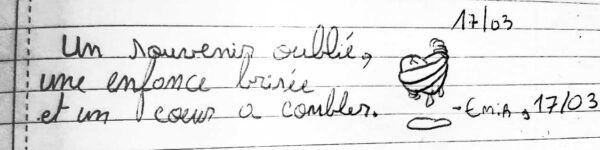 17/03
Un souvenir oublié,
une enfance brisée
et un coeur a combler.
-Emir, 17/03